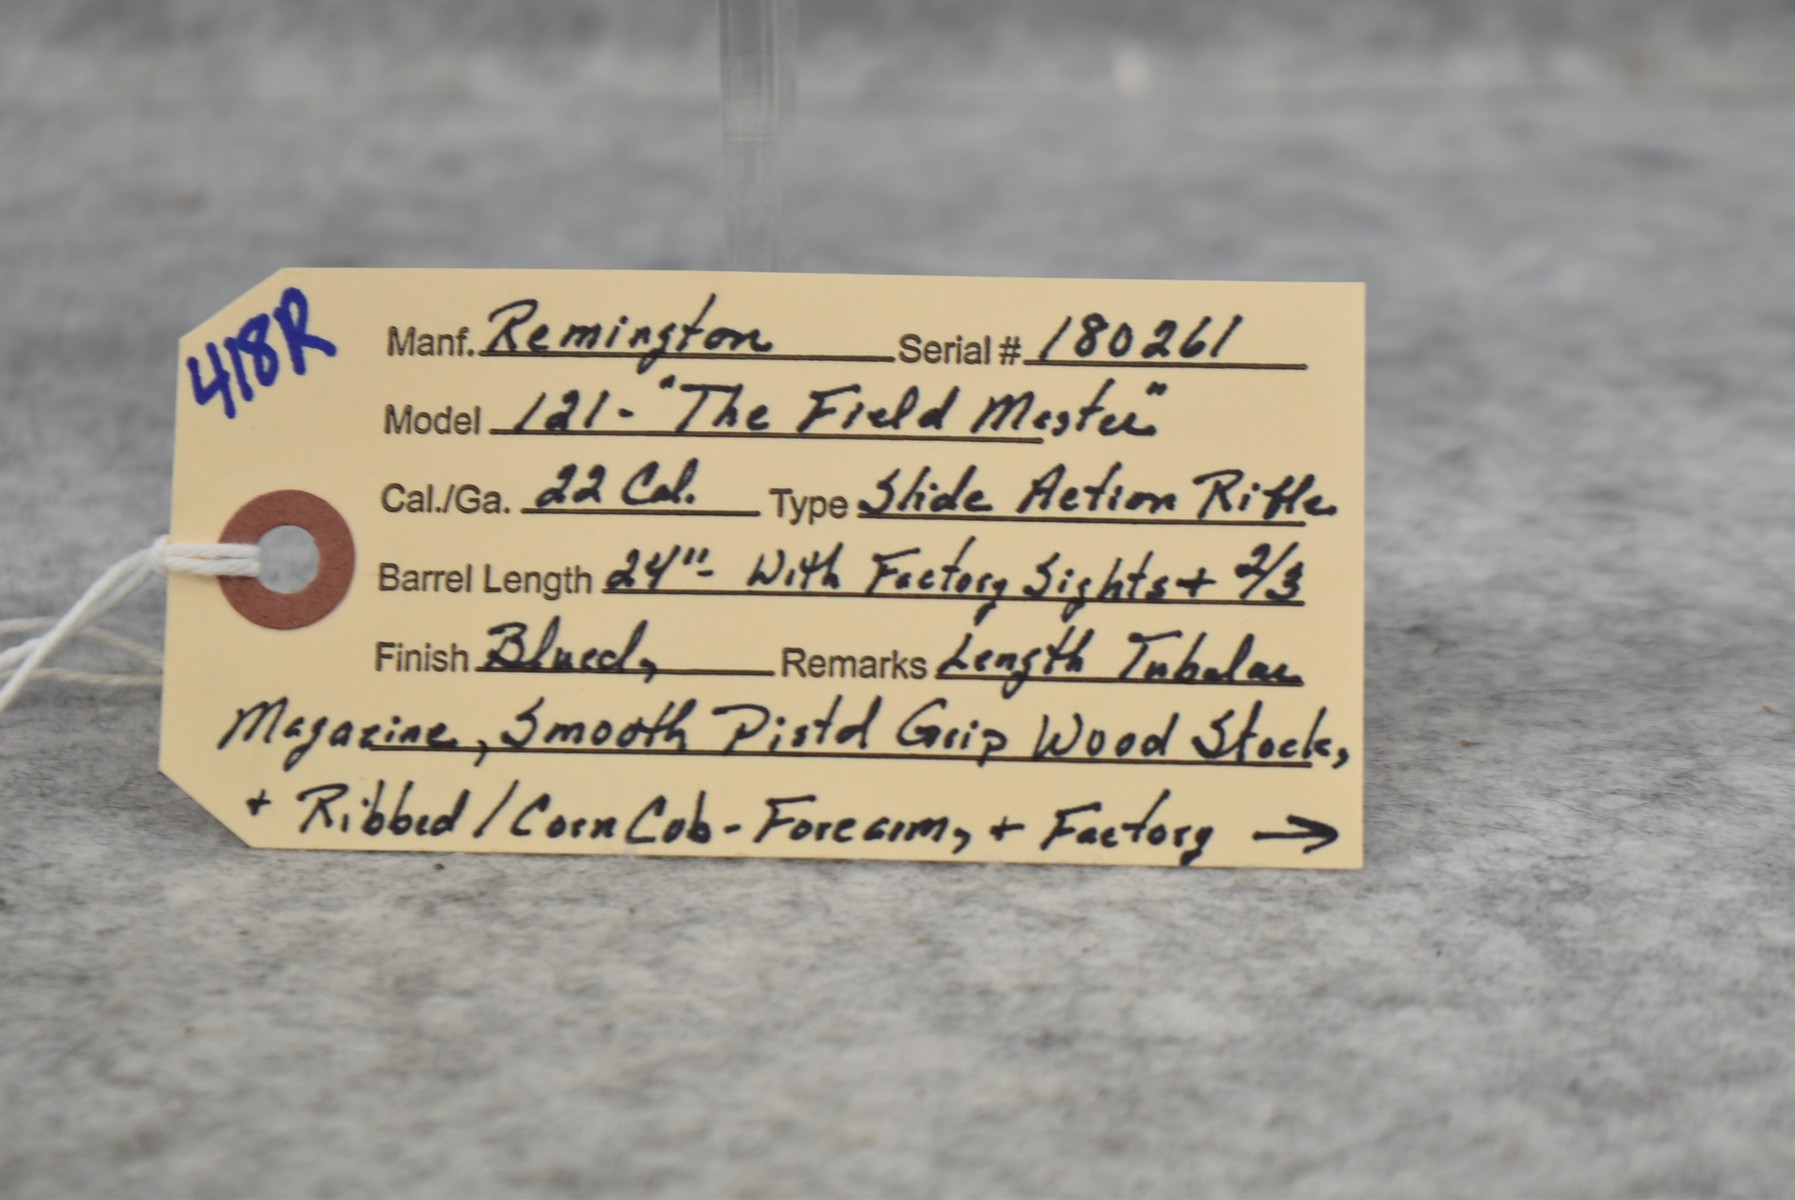 418R
Manf. Remington Serial # 180261
Model 121 - "The Field Master"
Cal./Ga. 22 Cal. Type Slide Action Rifle
Barrel Length 24" - With Factory Sights + 2/3
Finish Blued, Remarks Length Tubular
Magazine, Smooth Pistol Grip Wood Stock,
+ Ribbed / Corn Cob - Forearm, + Factory →